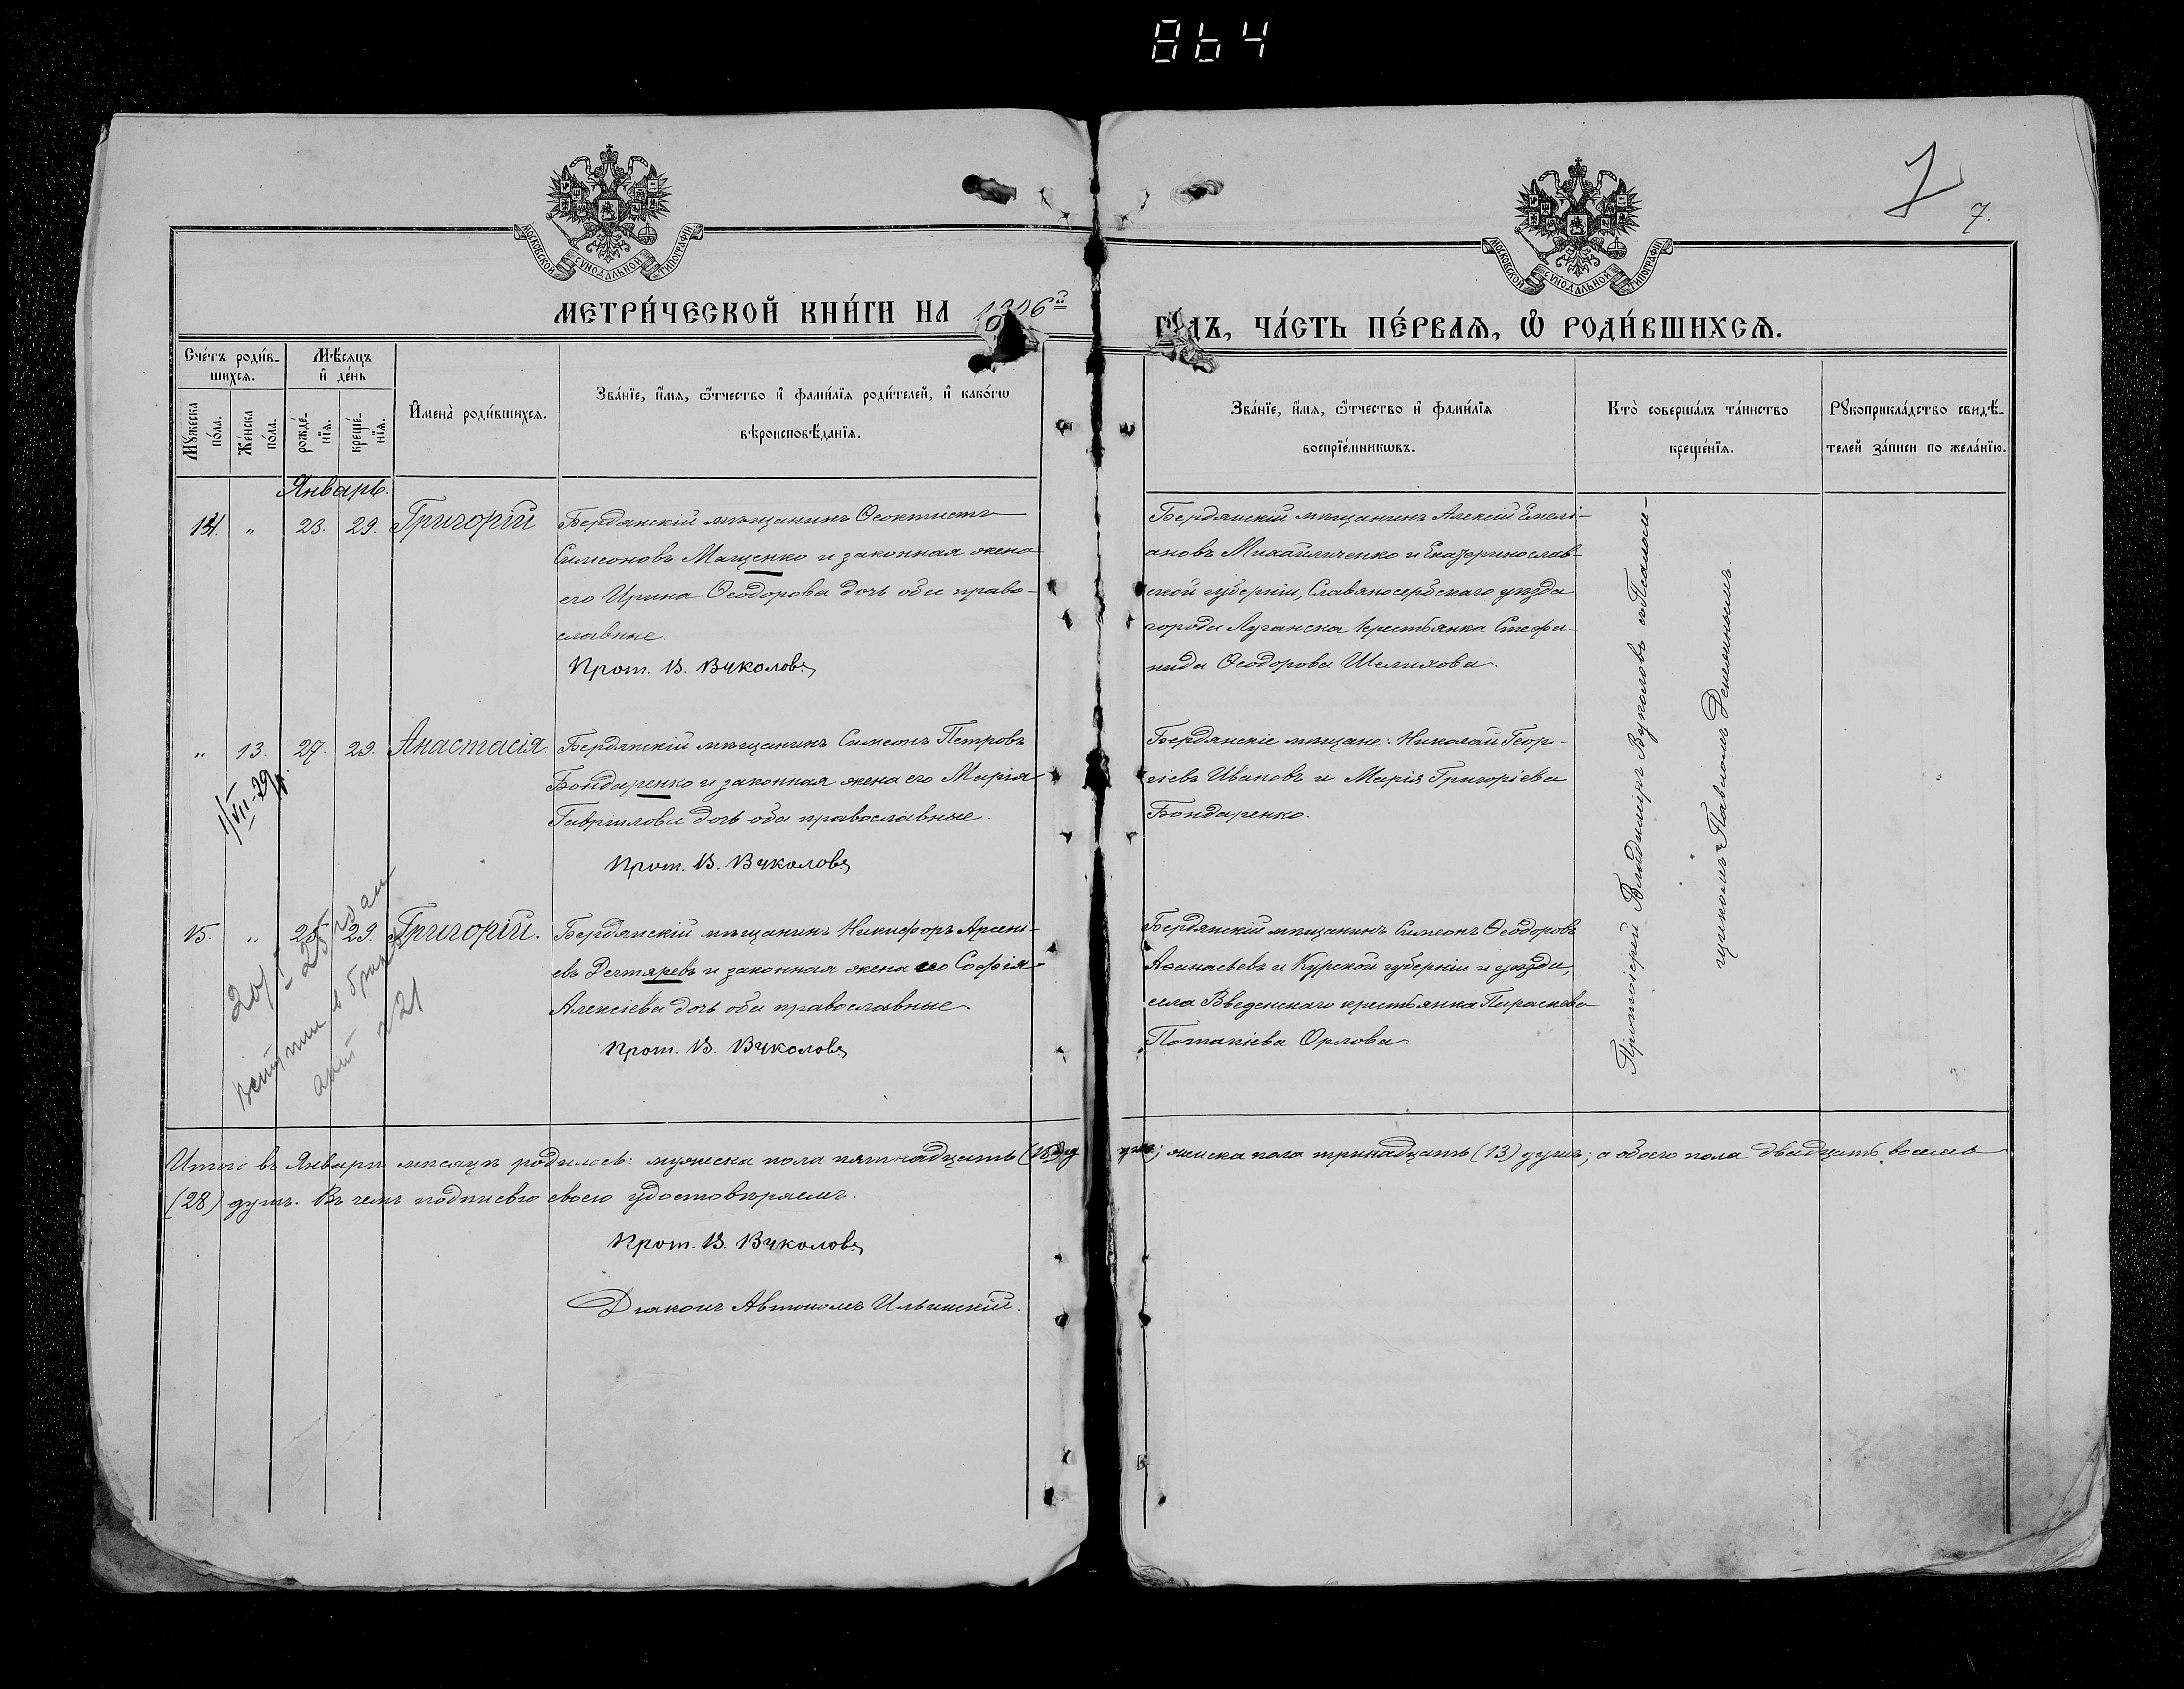 864
7
7.
МОСКОВСКОЙ СѴНОДАЛЬНОЙ ТИПОГРАФІИ
МОСКОВСКОЙ СѴНОДАЛЬНОЙ ТИПОГРАФІИ
МЕТРИ́ЧЕСКОЙ КНИ́ГИ НА
ГОДЪ, ЧА́СТЬ ПЕ́РВАѦ, Ѡ҆ РОДИ́ВШИХСѦ.
Сче́тъ роди́в-
шихсѧ.
Мѣ́сѧцъ
и҆ де́нь
Мꙋ́жеска
по́ла.
Же́нска
по́ла.
рожде́-
нїѧ.
креще́-
нїѧ.
И҆мена̀ роди́вшихсѧ.
Зва́нїе, и҆́мѧ, ѻ҆́тчество и҆ фами́лїѧ роди́телей, и҆ како́гѡ
вѣроисповѣ́данїѧ.
Зва́нїе, и҆́мѧ, ѻ҆́тчество и҆ фами́лїѧ
воспрїе́мникѡвъ.
Кто̀ соверша́лъ та́инство
креще́нїѧ.
Рꙋкоприкла́дство свидѣ́-
телей за́писи по жела́нїю.
Январь.
14. „ 23. 29. Григорій
Бердянскій мѣщанинъ Ѳеоктистъ
Симеоновъ Мащенко и законная жена
его Ирина Ѳеодорова дочь оба право-
славные.
Прот. В. Вуколовъ
Бердянскій мѣщанинъ Алексій Емелі-
ановъ Михайличенко и Екатеринослав-
ской губерніи, Славяносербскаго уѣзда
города Луганска крестьянка Стефа-
нида Ѳеодорова Шелихова.
„ 13. 27. 29. Анастасія
Бердянскій мѣщанинъ Симеонъ Петровъ
Бондаренко и законная жена его Марія
Гавріилова дочь оба православные.
Прот. В. Вуколовъ
Бердянскіе мѣщане: Николай Геор-
гіевъ Ивановъ и Марія Григоріева
Бондаренко.
15. „ 25. 29. Григорій.
Бердянскій мѣщанинъ Никифоръ Арсені-
евъ Дегтяревъ и законная жена его Софія
Алексіева дочь оба православные.
Прот. В. Вуколовъ
Бердянскій мѣщанинъ Симеонъ Ѳеодоровъ
Аѳанасьевъ и Курской губерніи и уѣзда,
села Введенскаго крестьянка Параскева
Потапіева Орлова.
Протоіерей Владиміръ Вуколовъ съ Псалом-
щикомъ Павломъ
вступил в брак
акт 221
Итого въ Январѣ мѣсяцѣ родилось: мужеска пола пятнадцать (15) ду
душъ; женска пола тринадцать (13) душъ; а обоего пола двадцать восемь
(28) душъ. Въ чемъ подписью своею удостовѣряемъ.
Прот. В. Вуколовъ
Діаконъ Автономъ Ильинскій.